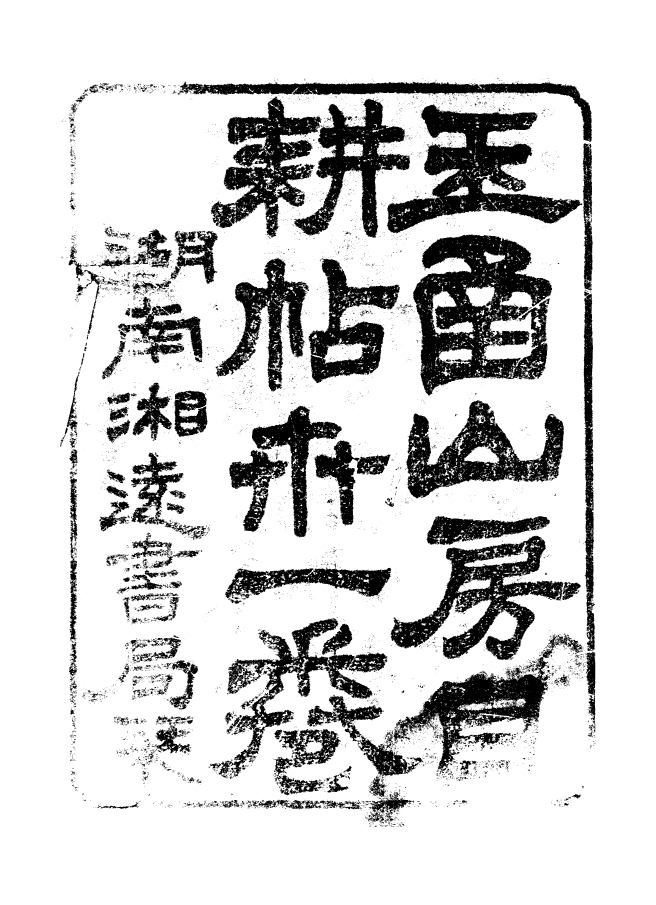 玉函山房目
耕帖卅一卷
湖南湘遠書局栞